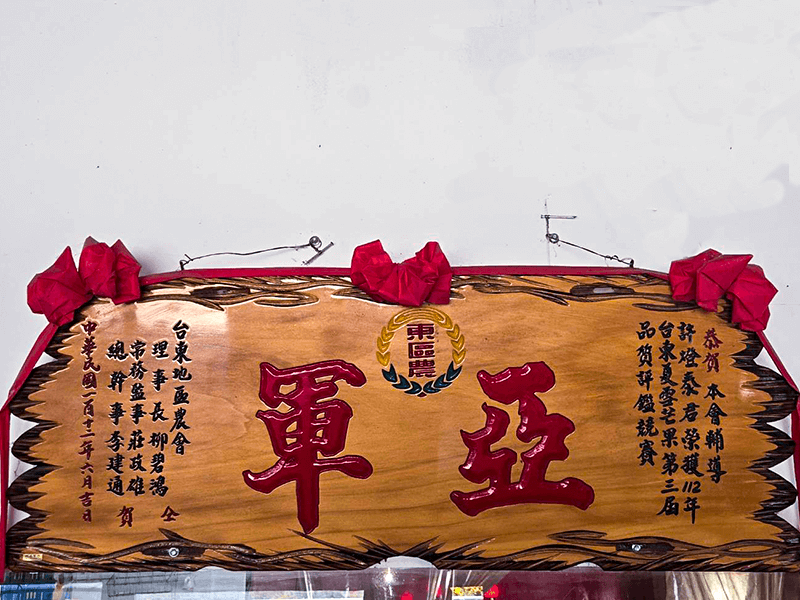 恭賀 本會輔導
許燈泰君榮獲112年
台東夏雪芒果第三屆
品質評鑑競賽
亞軍
東區農
台東地區農會
理事長 柳碧鴻
常務監事 莊政雄
總幹事 李建通
仝
賀
中華民國一百十二年六月吉日